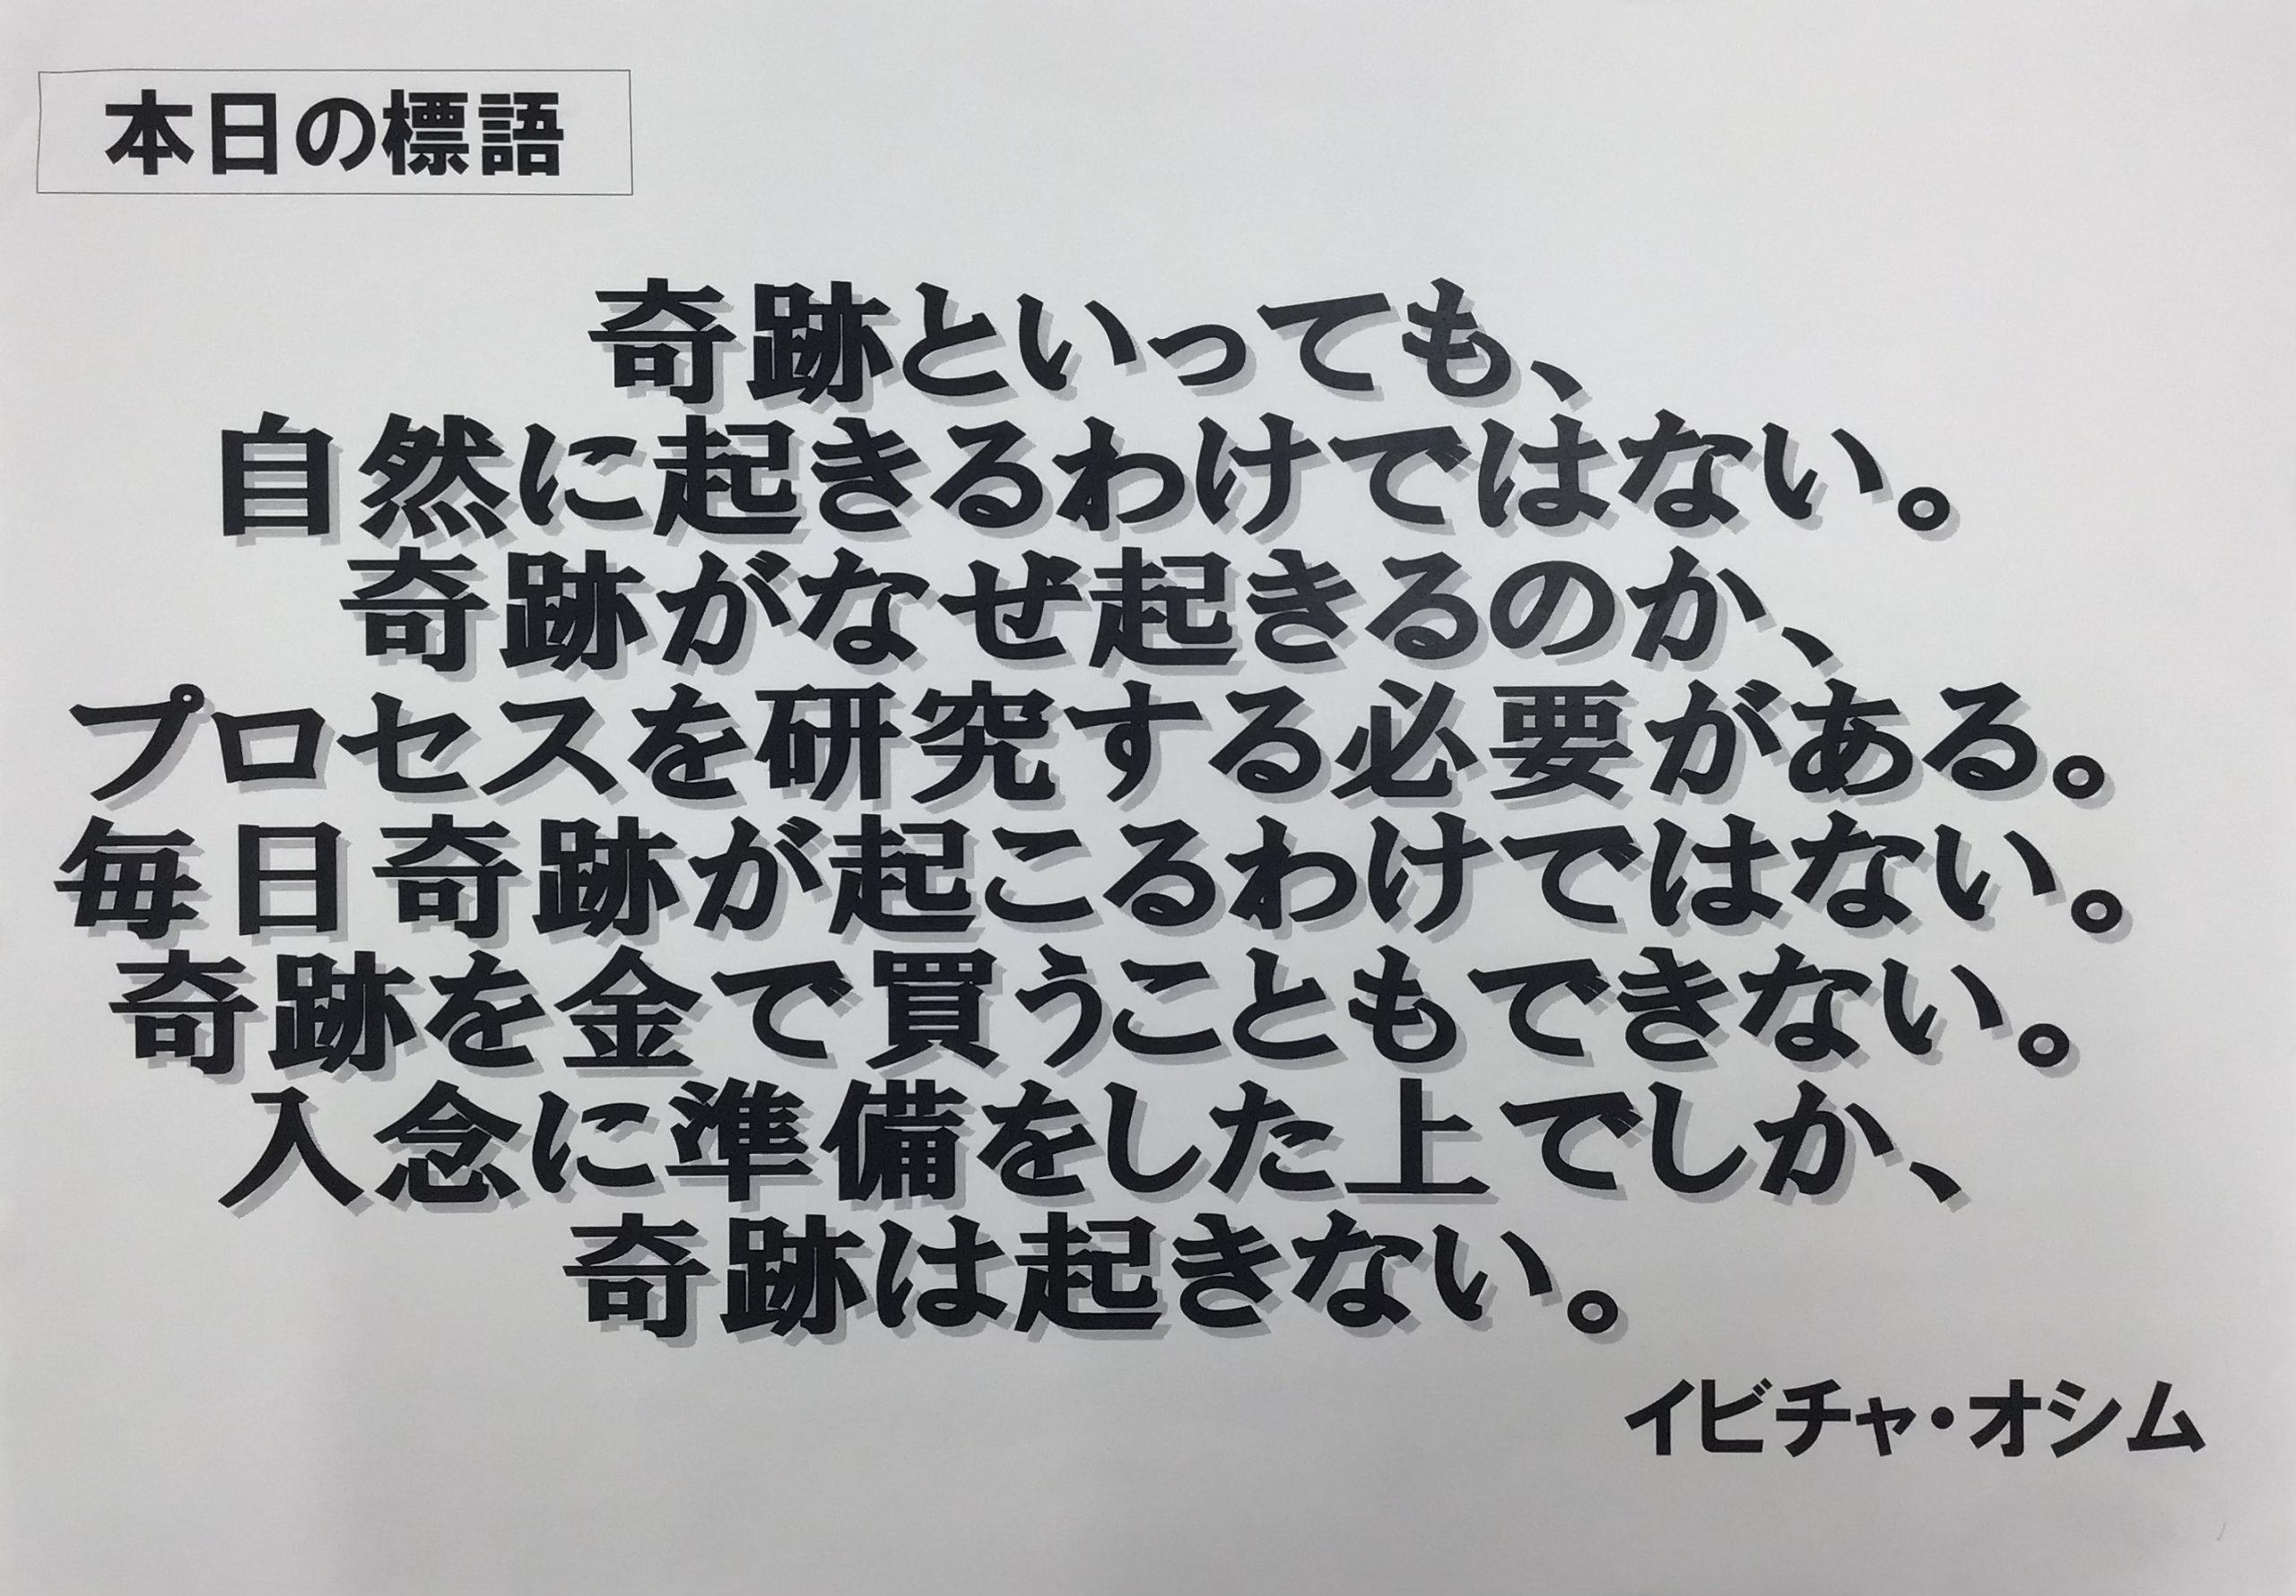 本日の標語
奇跡といっても、
自然に起きるわけではない。
奇跡がなぜ起きるのか、
プロセスを研究する必要がある。
毎日奇跡が起こるわけではない。
奇跡を金で買うこともできない。
入念に準備をした上でしか、
奇跡は起きない。
イビチャ・オシム